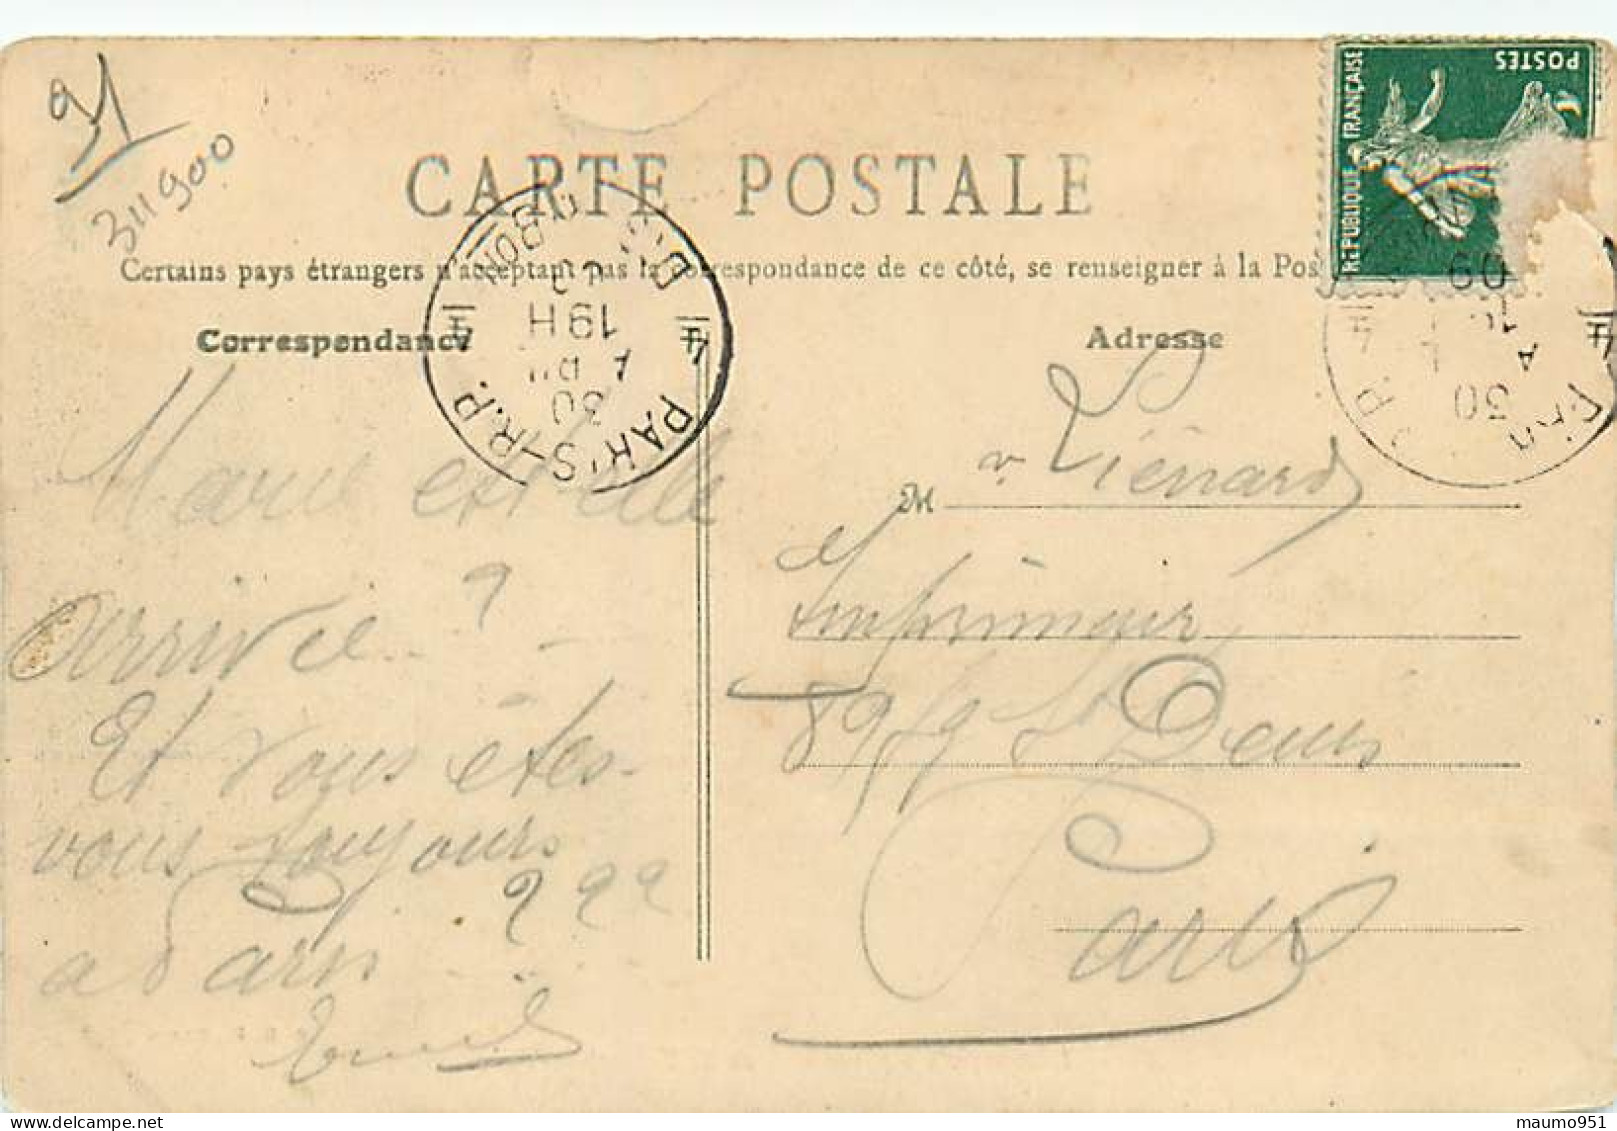 21
311900
CARTE POSTALE
Certains pays étrangers n'acceptant pas la correspondance de ce côté, se renseigner à la Pos
Correspondance
Adresse
REPUBLIQUE FRANÇAISE
POSTES
PARIS-R.P.
4 4
19H
30
30
09
4 4
Marie est elle
arrivée ?
Et vous êtes-
vous toujours
a Paris ???
M r Liénard
Imprimeur
89 St Denis
Paris
maumo951